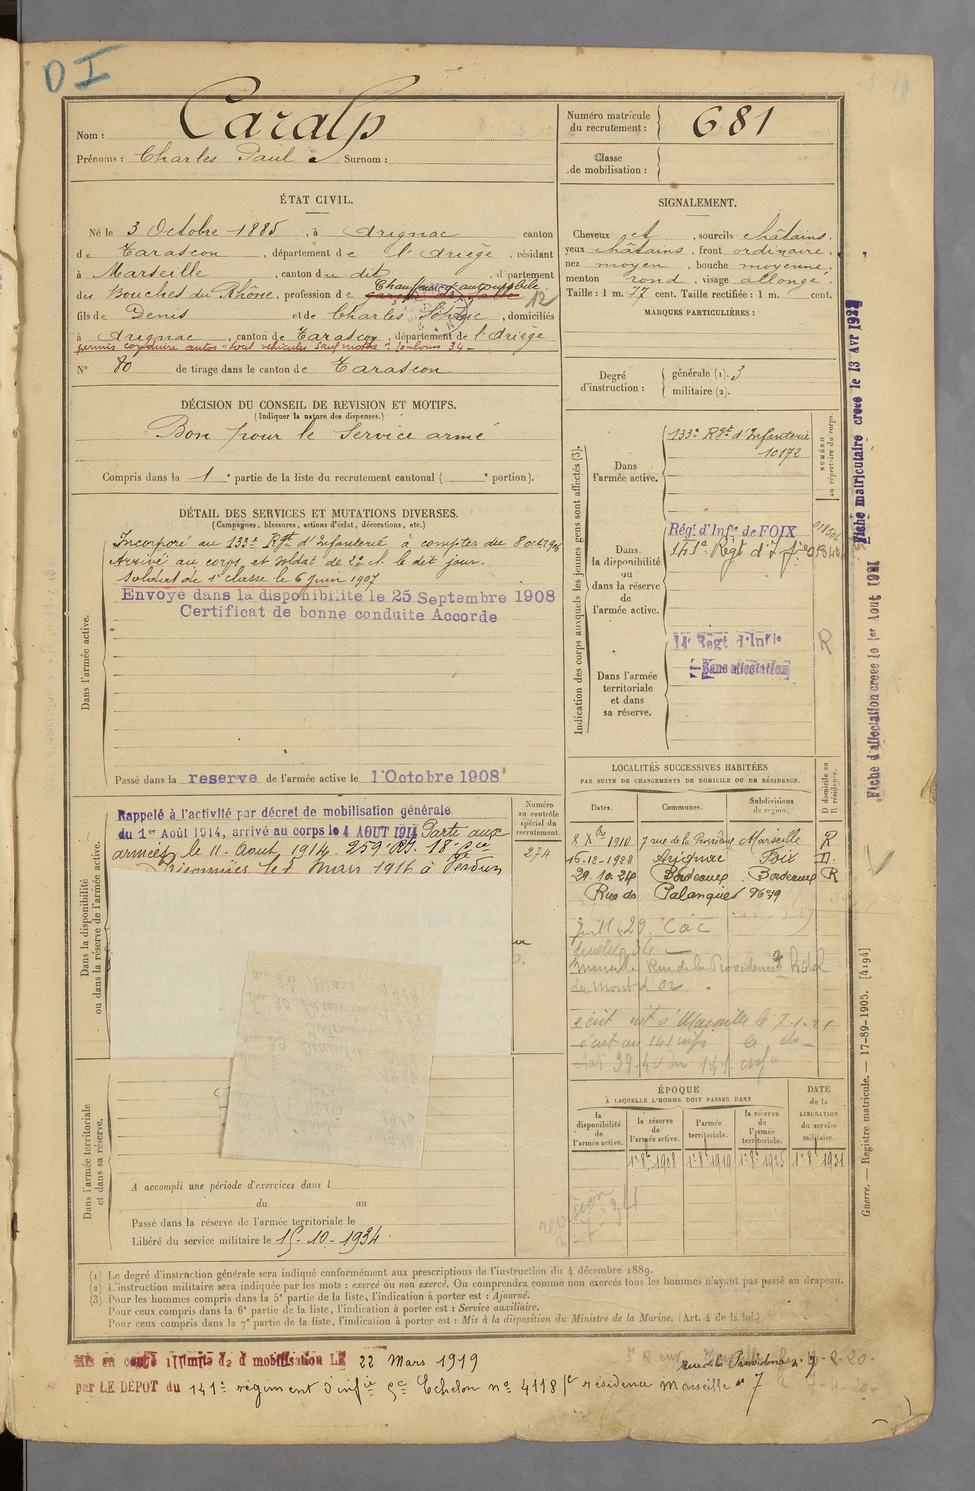 D I
Nom : Caralp
Prénoms : Charles Paul Surnom :
Numéro matricule du recrutement : 681
Classe de mobilisation :
ÉTAT CIVIL.
Né le 3 Octobre 1885, à Arignac canton
de Tarascon, département de l'Ariège, résidant
à Marseille, canton du dit, département
des Bouches du Rhône, profession de Chauffeur d'automobile
12
fils de Denis et de Charles Sophie, domiciliés
à Arignac, canton de Tarascon, département de l'Ariège
permis conduire autos "tous véhicules sauf motos" Toulouse 34-
N° 80 de tirage dans le canton de Tarascon
SIGNALEMENT.
Cheveux et, sourcils châtains,
yeux châtains, front ordinaire,
nez moyen, bouche moyenne,
menton rond, visage allongé.
Taille : 1 m. 77 cent. Taille rectifiée : 1 m. cent.
MARQUES PARTICULIÈRES :
Degré d'instruction : générale (1). 3
militaire (2).
DÉCISION DU CONSEIL DE REVISION ET MOTIFS.
(Indiquer la nature des dispenses.)
Bon pour le Service armé
Compris dans la 1e partie de la liste du recrutement cantonal ( e portion).
DÉTAIL DES SERVICES ET MUTATIONS DIVERSES.
(Campagnes, blessures, actions d'éclat, décorations, etc.)
Dans l'armée active.
Incorporé au 133e Rgt d'Infanterie à compter du 8 oct 1906
Arrivé au corps et soldat de 2e cl. le dit jour.
Soldat de 1e classe le 6 juin 1907
Envoyé dans la disponibilité le 25 Septembre 1908
Certificat de bonne conduite Accordé
Passé dans la reserve de l'armée active le 1 Octobre 1908
Indication des corps auxquels les jeunes gens sont affectés (3).
NUMÉRO au répertoire du corps.
Dans l'armée active.
133e Rgt d'Infanterie
10172
Dans la disponibilité ou dans la réserve de l'armée active.
Régt d'Infie de FOIX
141e Régt d'Inf
Dans l'armée territoriale et dans sa réserve.
14 Regt d'Infie
Sans affectation
R
Fiche matriculaire créée le 13 Avr 1927
Fiche d'affectation créée le 1er Aout 1921
Dans la disponibilité ou dans la réserve de l'armée active.
Numéro au contrôle spécial du recrutement.
274
Rappelé à l'activité par décret de mobilisation générale
du 1er Août 1914, arrivé au corps le 4 AOUT 1914 Parti aux
armées le 11 Août 1914. 259e RI. 18e Cie
Prisonnier le 1 Mars 1916 à Verdun
LOCALITÉS SUCCESSIVES HABITÉES
PAR SUITE DE CHANGEMENTS DE DOMICILE OU DE RÉSIDENCE.
Dates. Communes. Subdivisions de région. D domicile ou R résidence.
8 Xbre 1910 7 rue de la Providence Marseille R
16-12-1922 Arignac Foix D.
29.10.24 Bordeaux Bordeaux R
Rue des Palanques N° 49
Marseille Rue de la Providence 7 hôtel
du Mont d'or
Dans l'armée territoriale et dans sa réserve.
A accompli une période d'exercices dans l
du au
Passé dans la réserve de l'armée territoriale le
Libéré du service militaire le 15-10-1934
ÉPOQUE
À LAQUELLE L'HOMME DOIT PASSER DANS
la disponibilité de l'armée active. la réserve de l'armée active. l'armée territoriale. la réserve de l'armée territoriale. DATE de la LIBÉRATION du service militaire.
1-8e 1908 1-8e 1919 1-8e 1925 1-8e 1931
Guerre. — Registre matricule. — 17-89-1905. [4194]
(1) Le degré d'instruction générale sera indiqué conformément aux prescriptions de l'instruction du 4 décembre 1889.
(2) L'instruction militaire sera indiquée par les mots : exercé ou non exercé. On comprendra comme non exercés tous les hommes n'ayant pas passé au drapeau.
(3) Pour les hommes compris dans la 5e partie de la liste, l'indication à porter est : Ajourné.
Pour ceux compris dans la 6e partie de la liste, l'indication à porter est : Service auxiliaire.
Pour ceux compris dans la 7e partie de la liste, l'indication à porter est : Mis à la disposition du Ministre de la Marine. (Art. 4 de la loi.)
Mis en congé illimité de démobilisation LE 22 Mars 1919
par LE DÉPOT du 141e régiment d'infie 5e Echelon n° 4118 Rue de la Providence n° 7
se résidence Marseille